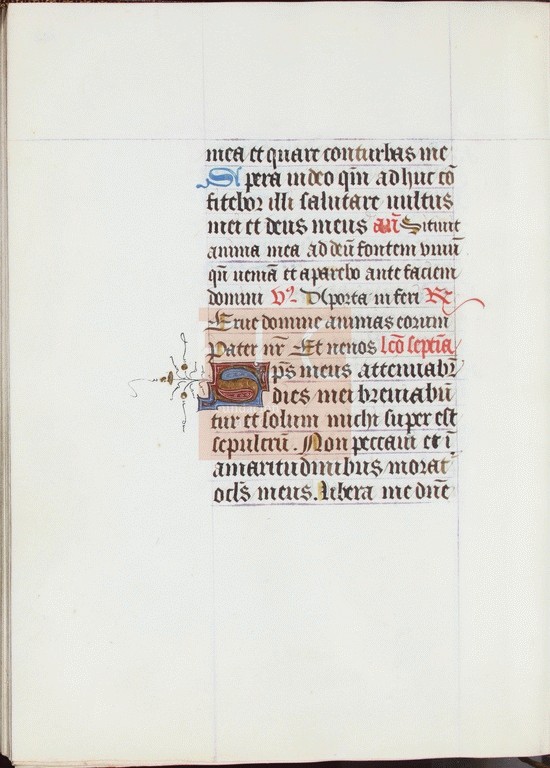 mea et quare conturbas me
Spera in deo qm̄ adhuc cō
fitebor illi salutare uultus
mei et deus meus añ Sitiuit
anima mea ad deū fontem viuū
qn̄ ueniā et aparebo ante faciem
domini V⁹ A porta inferi R⁊
Erue domine animas eorum
Pater nr̄ Et nenos lcō septīa
Sps̄ meus attenuabr̄
dies mei breuiabū
tur et solum michi super est
sepulcrū. Non peccaui et ī
amaritudinibus morat᷑
ocl̄s meus. libera me dn̄e